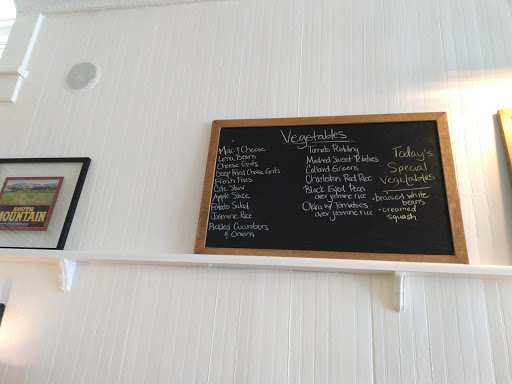 Vegetables
Mac & Cheese
Lima Beans
Cheese Grits
Deep Fried Cheese Grits
French Fries
Cole Slaw
Apple Sauce
Potato Salad
Jasmine Rice
Pickled Cucumbers
& Onions
Tomato Pudding
Mashed Sweet Potatoes
Collard Greens
Charleston Red Rice
Black Eyed Peas
over jasmine rice
Okra w/ Tomatoes
over jasmine rice
Today's
Special
Vegetables
• braised white
beans
• creamed
squash
SOUTH
MOUNTAIN